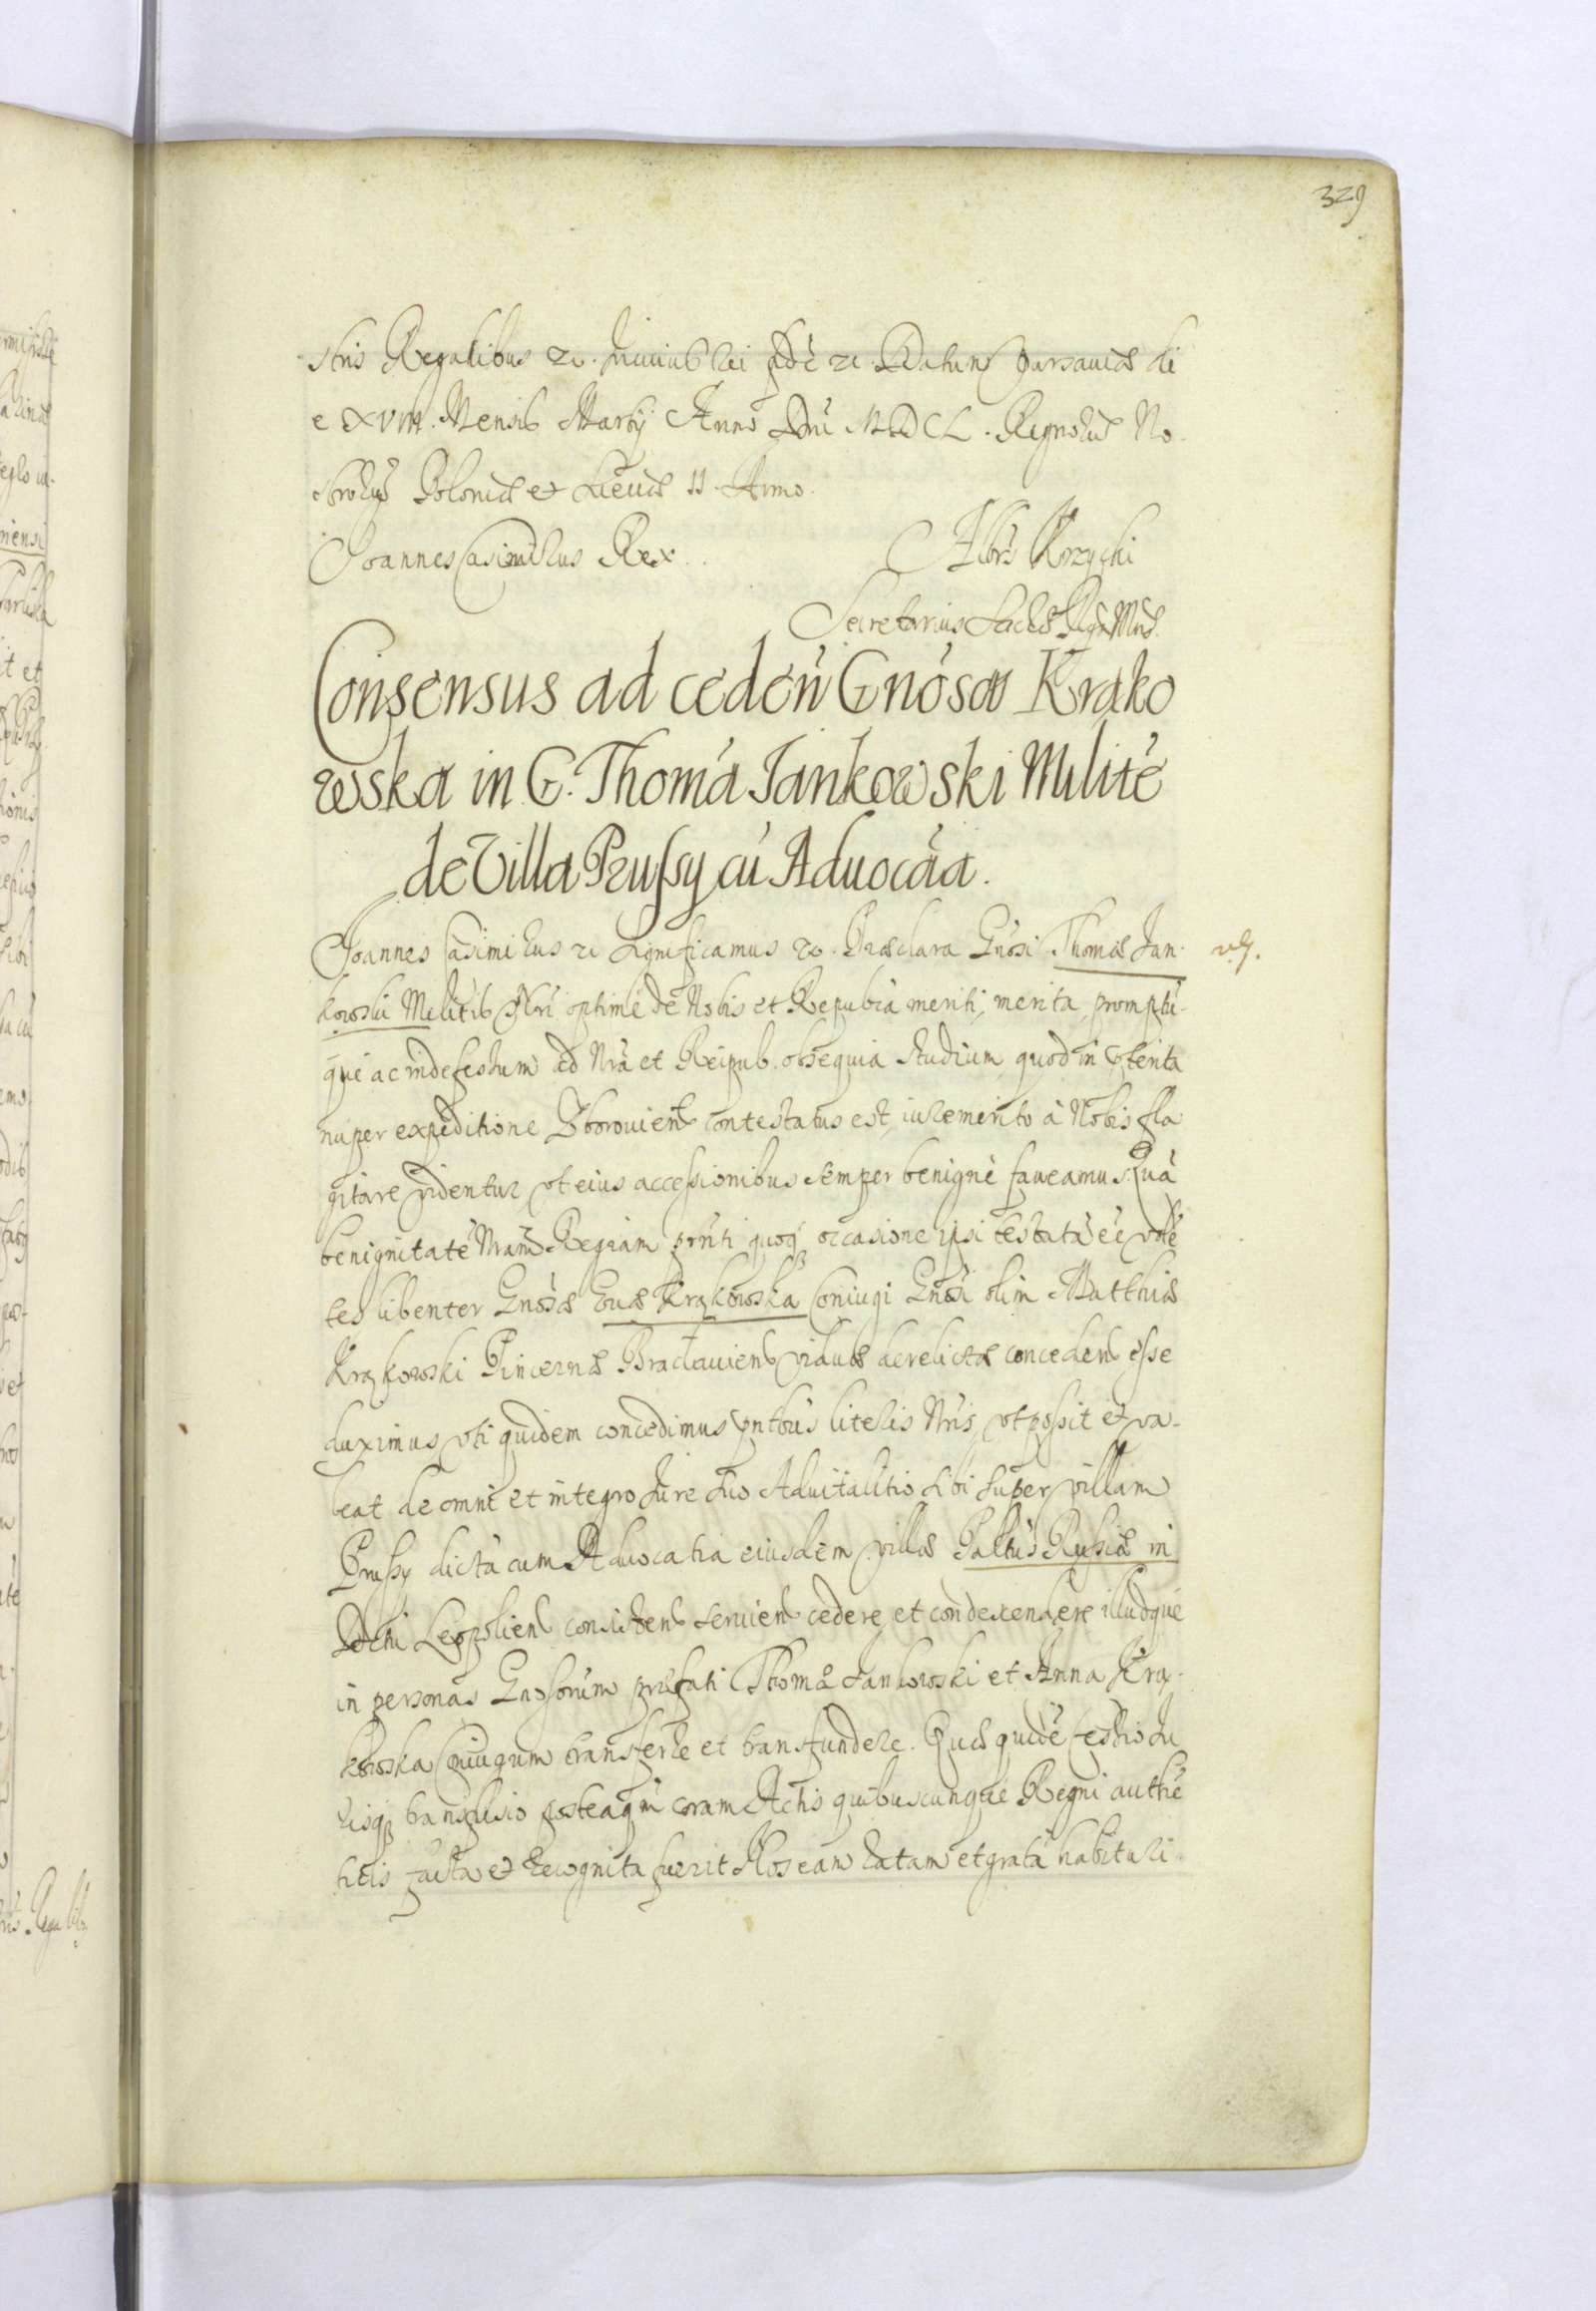 329
stris Regalibus etc. In cuius rei fidē etc. Datum Varsauiæ di
e XVIII. Mensis Martij Anno Dni MDCL. Regnorum No-
strorum Poloniæ et Sueciæ II. Anno.
Joannes Casimirus Rex.
Albrs Korzycki
Secretarius Sacræ Rgæ Mtis.
Consensus ad cedēn Gnosæ Krako
wska in G. Thomā Jankowski Militē
de Villa Prussy cū Aduocāa.
Joannes Casimirus etc Significamus etc. Præclara Gnosi Thomæ Jan-
kowski Militis Nri optimè de Nobis et Republca meriti, merita, promptū-
què ac indefessum ad Nrā et Reipub. obsequia studium, quod in
nuper expeditione Zborouiens contestatus est, iure merito à Nobis fla
gitare videntur, vt eius accessionibus semper benignè faueamus. Quā
benignitatē Nram Regiam prnti quoq occasione ipsi testatā eē vole
tes libenter Gnosæ Euæ Krakowska Coniugi Gnosi olim Matthiæ
Krakowski Pincernæ Braclauiens viduæ derelictæ conceden esse
duximus, vti quidem concedimus pntbus literis Nris, vt possit et va-
leat de omni et integro Jure suo Aduitalitio sibi super villam
Prussy dictā cum Aduocatia eiusdem villæ Paltūs Russiæ in
Leopolien consisten seruien cedere et condescendere illudque
in personas Gnosorum præfati Thomæ Jankowski et Anna Kra-
kowska Coniugum transferre et transfundere. Quæ quidē cessio Ju
risq transfusio posteaqm coram Actis quibuscunque Regni authē
ticis facta et recognita fuerit Nos eam ratam et gratā habituri